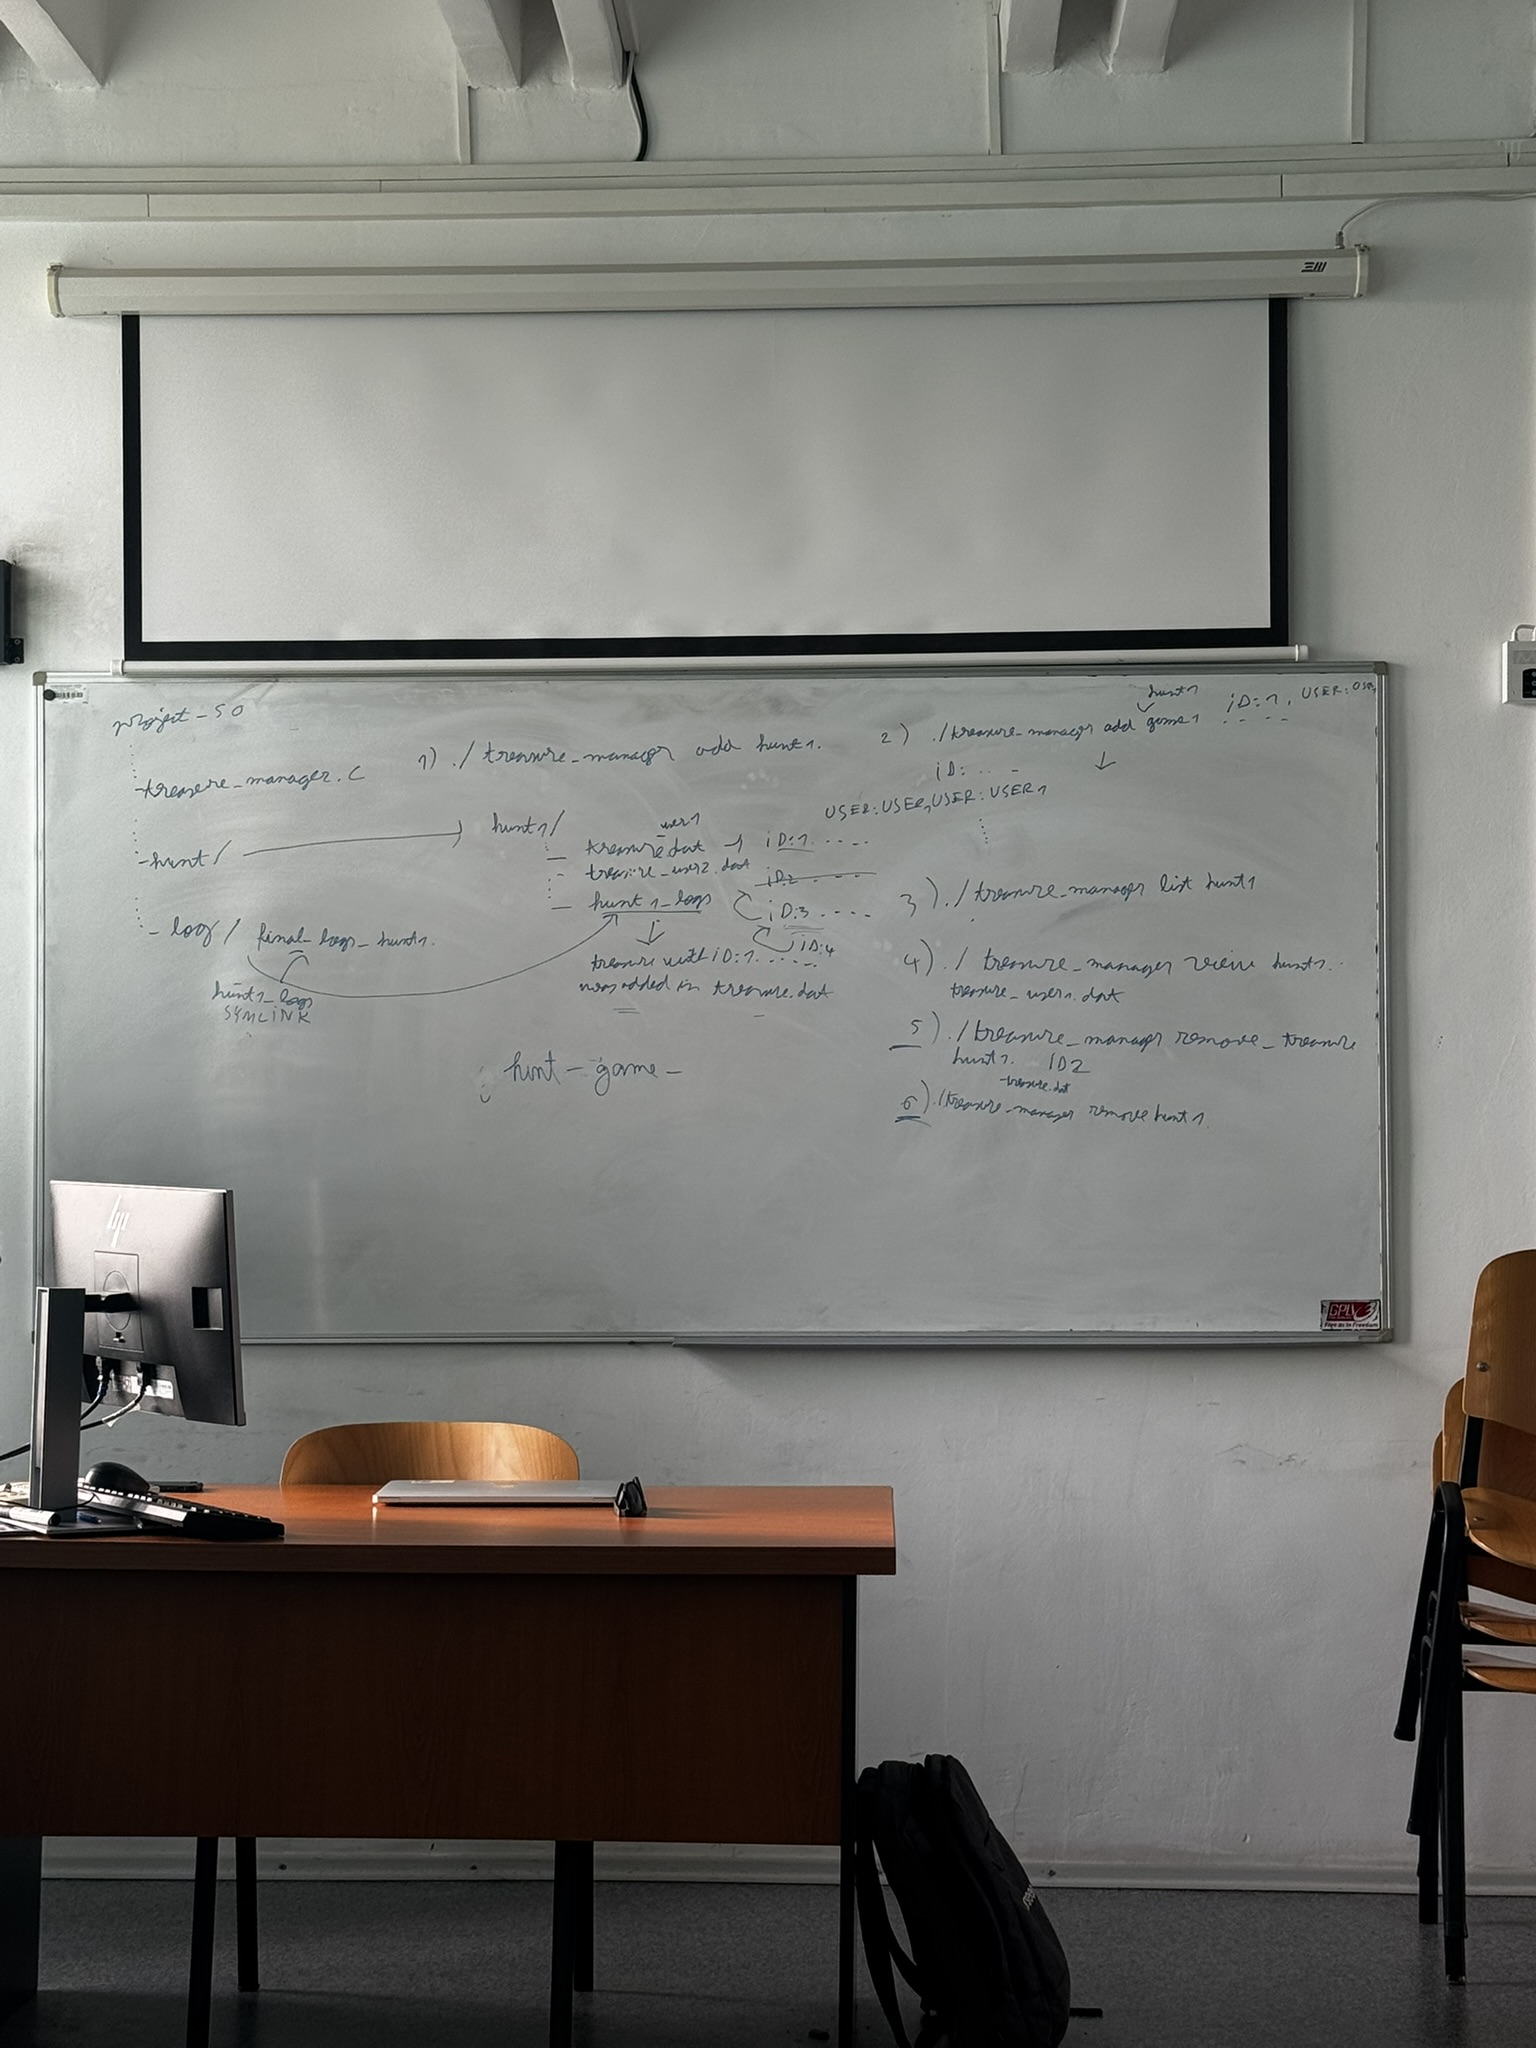 project_SO
-treasure_manager.c
-hunt/
- log/ final_logs_hunt1.
hunt1_logs
SYMLINK
1) ./treasure_manager add hunt1.
hunt1/
user1
- treasure.dat → iD:1. - - - -
- treasure_user2.dat iD:2 - - - -
- hunt1_logs iD:3 - - - -
iD:4
treasure with iD:1. . . . .
was added in treasure.dat
hunt - game -
hunt1
2) ./treasure_manager add game1 iD:1. USER:
iD: . . -
USER: USER, USER: USER1
3) ./treasure_manager list hunt1
4) ./treasure_manager view hunt1.
treasure_user1.dat
5) ./treasure_manager remove_treasure
hunt1. ID2
-treasure.dat
6) ./treasure_manager remove hunt1.
hp
GPLv3
Free as in Freedom